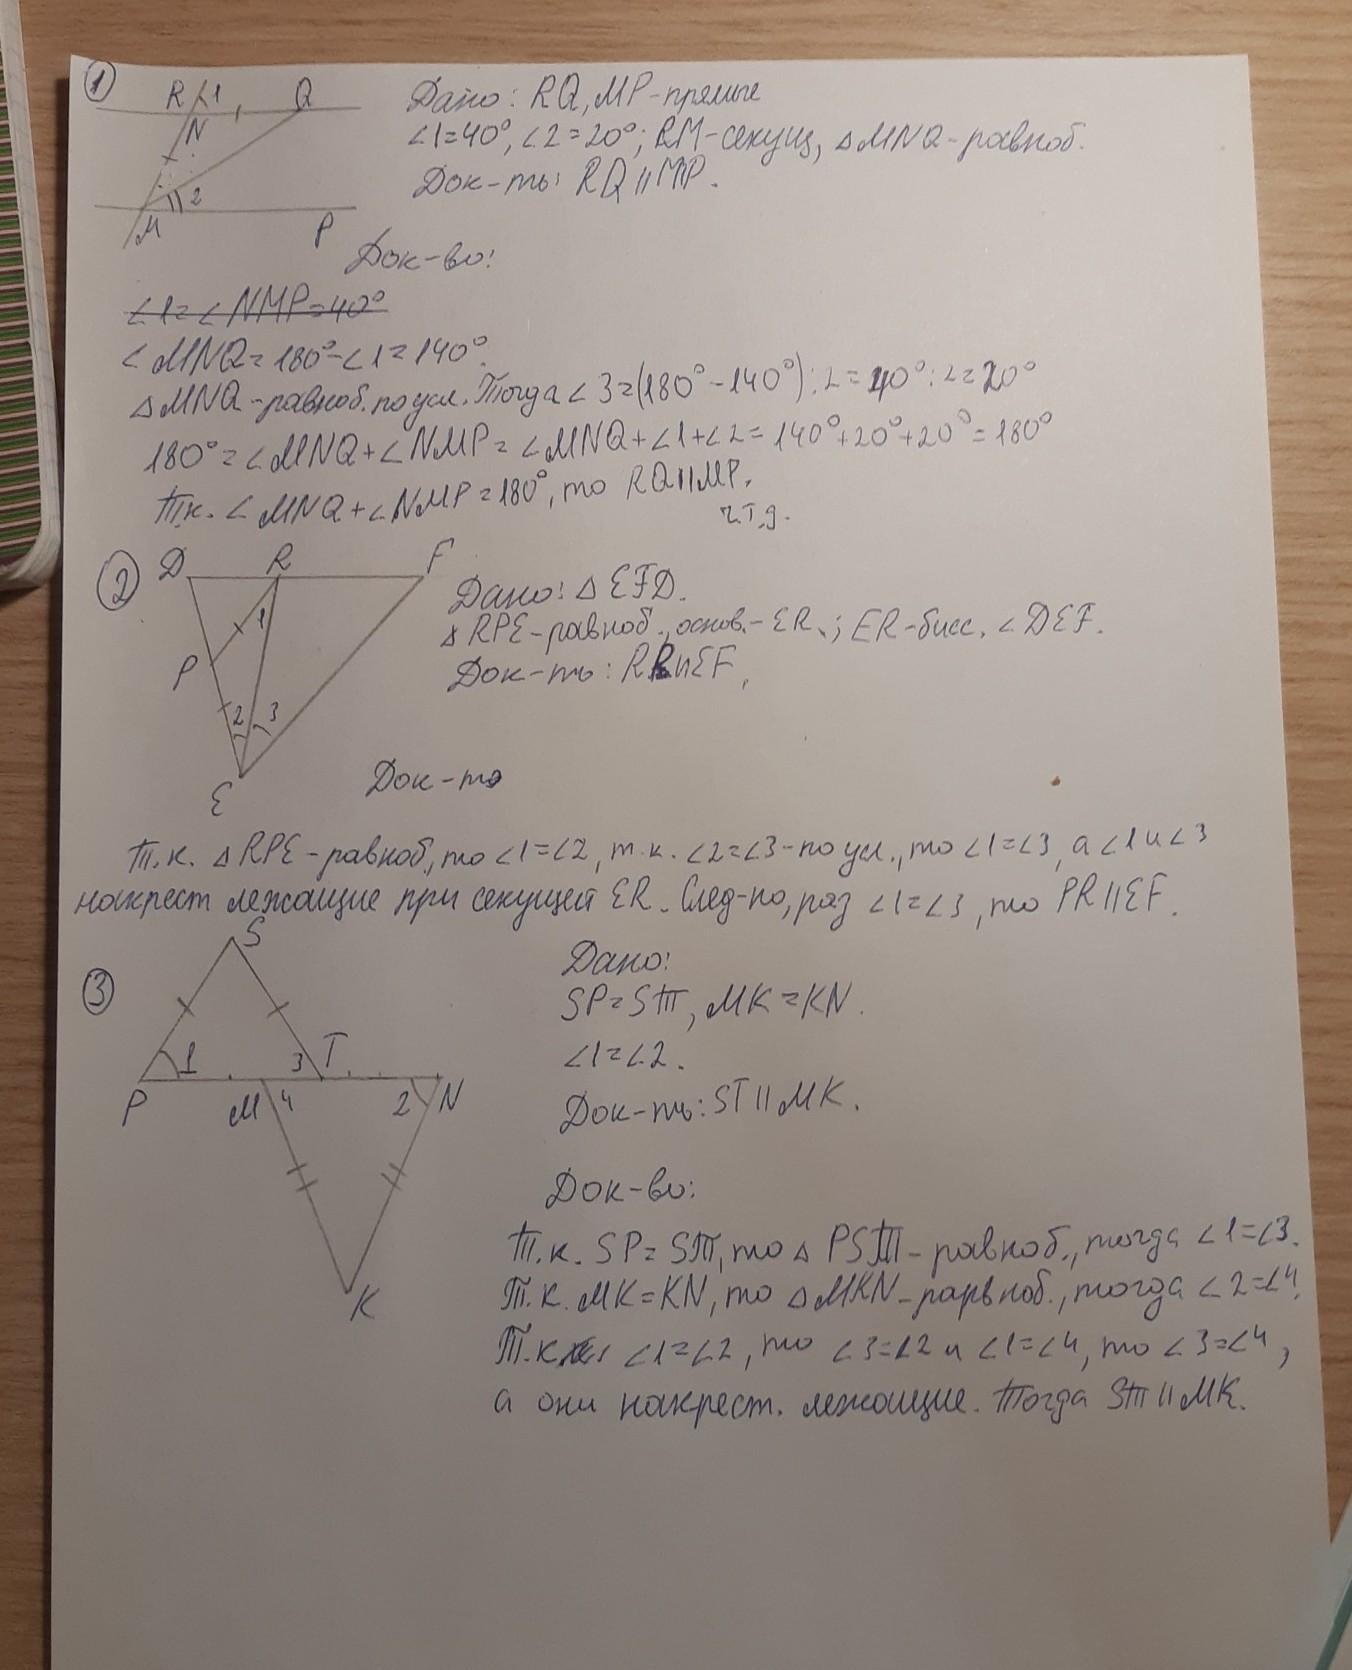 1
R 1 Q
N
2
M P
Дано: RQ, MP-прямые
∠1=40°, ∠2=20°; RM-секущ, △MNQ-равноб.
Док-ть: RQ||MP.
Док-во:
∠1=∠NMP=40°
∠MNQ=180°-∠1=140°.
△MNQ-равноб. по усл. Тогда ∠3=(180°-140°):2=40°:2=20°
180°=∠MNQ+∠NMP=∠MNQ+∠1+∠2=140°+20°+20°=180°
Т.к. ∠MNQ+∠NMP=180°, то RQ||MP.
ч.т.д.
2
D R F
1
P
2 3
E
Дано: △EFD.
△RPE-равноб., основ.-ER.; ER-бисс. ∠DEF.
Док-ть: RP||EF,
Док-то
Т.к. △RPE-равноб., то ∠1=∠2, т.к. ∠2=∠3-по усл., то ∠1=∠3, а ∠1 и ∠3
накрест лежащие при секущей ER. След-но, раз ∠1=∠3, то PR||EF.
3
S
1 3 T
P M 4 2 N
K
Дано:
SP=ST, MK=KN.
∠1=∠2.
Док-ть: ST||MK.
Док-во:
Т.к. SP=ST, то △PST-равноб., тогда ∠1=∠3.
Т.к. MK=KN, то △MKN-рарвноб., тогда ∠2=∠4.
Т.к. ∠1=∠2, то ∠3=∠2 и ∠1=∠4, то ∠3=∠4,
а они накрест. лежащие. Тогда ST||MK.